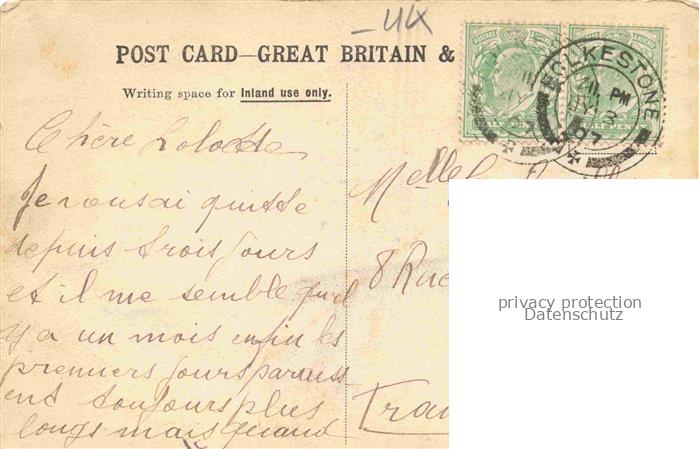 POST CARD—GREAT BRITAIN &
Writing space for Inland use only.
FOLKESTONE
PM
07
HALFPENNY
Chère Lolotte
Je vous ai quitté
depuis trois jours
et il me semble qu'il
y a un mois enfin les
premiers jours paraiss
ent toujours plus
longs mais quand
Melle
8 Rue
Fran
privacy protection
Datenschutz